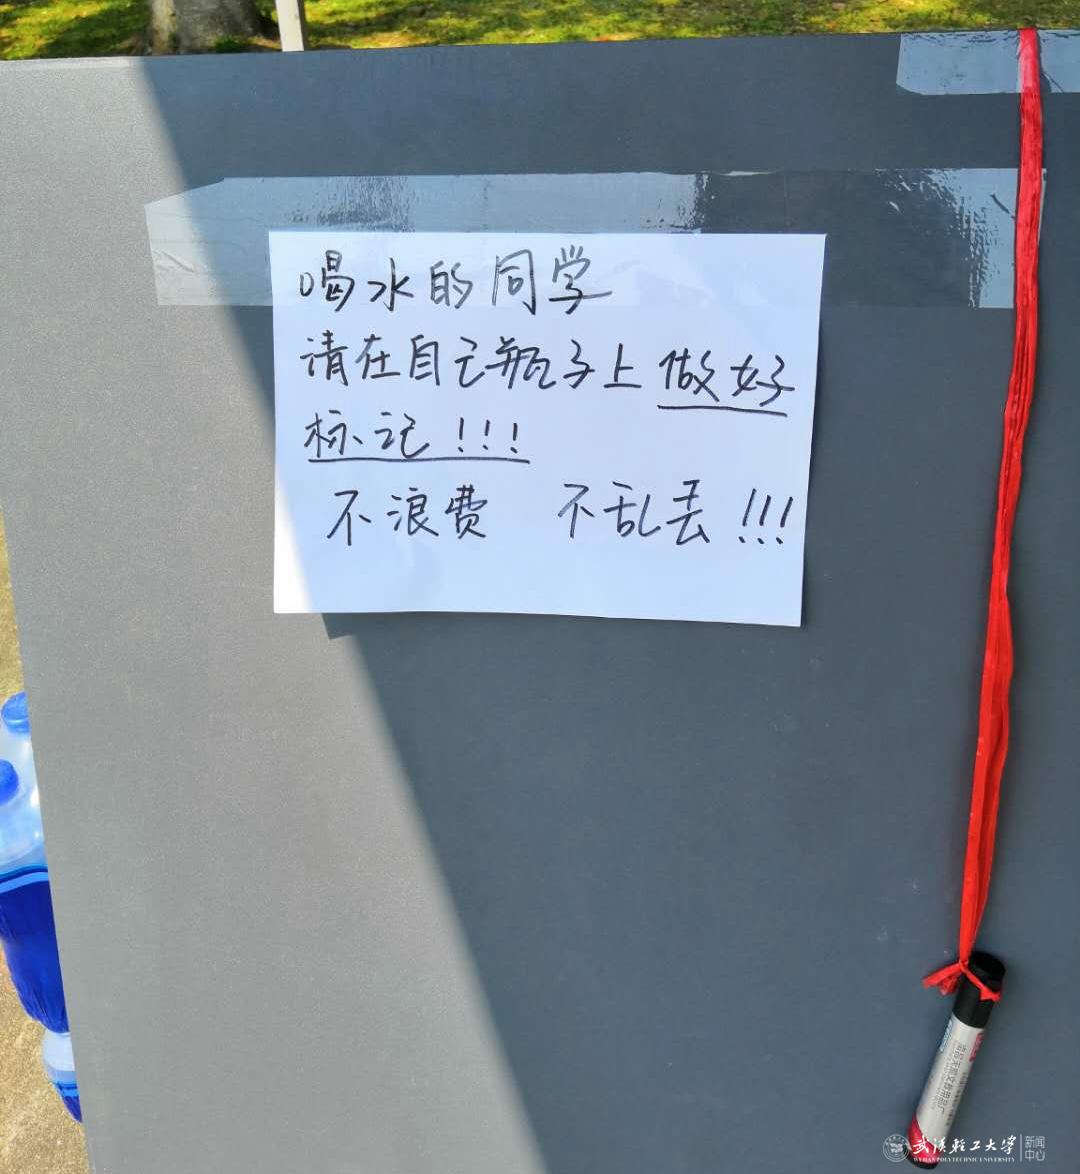 喝水的同学
请在自己瓶子上做好
标记!!!
不浪费 不乱丢!!!
武汉轻工大学
WUHAN POLYTECHNIC UNIVERSITY
新闻
中心